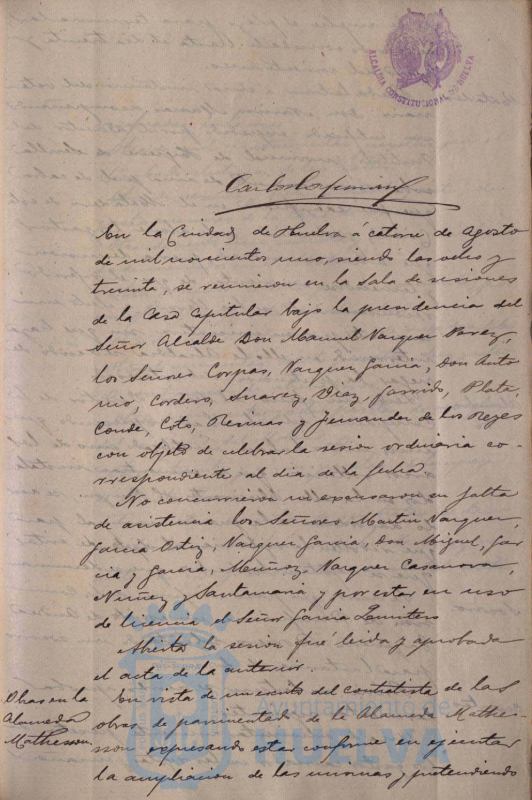 ALCALDIA CONSTITUCIONAL DE HUELVA
En la Ciudad de Huelva á catorce de Agosto
de mil novecientos uno, siendo las veinte y
treinta, se reunieron en la Sala de sesiones
de la Casa Capitular bajo la presidencia del
Señor Alcalde Don Manuel Vazquez Perez,
los Señores Corpas, Vazquez Garcia, Don Anto
nio, Cordero, Suarez, Diaz, Garrido, Plata,
Conde, Coto, Resinas y Fernandez de los Reyes
con objeto de celebrar la sesion ordinaria co-
rrespondiente al dia de la fecha.
No concurrieron ni excusaron su falta
de asistencia los Señores Martin Vazquez,
Garcia Ortiz, Vazquez Garcia, Don Miguel, Gar
cia y Garcia, Muñoz, Vazquez Casanova,
Nuñez y Santamaria y por estar en uso
de licencia el Señor Garcia
Abierta la sesion fué leida y aprobada
el acta de la anterior.
Obras en la
Alameda
Mathesson.
En vista de un escrito del contratista de las
obras de pavimentado de la Alameda Mathe-
sson expresando estar conforme en ejecutar
la ampliacion de las mismas y pretendiendo
Ayuntamiento de
HUELVA